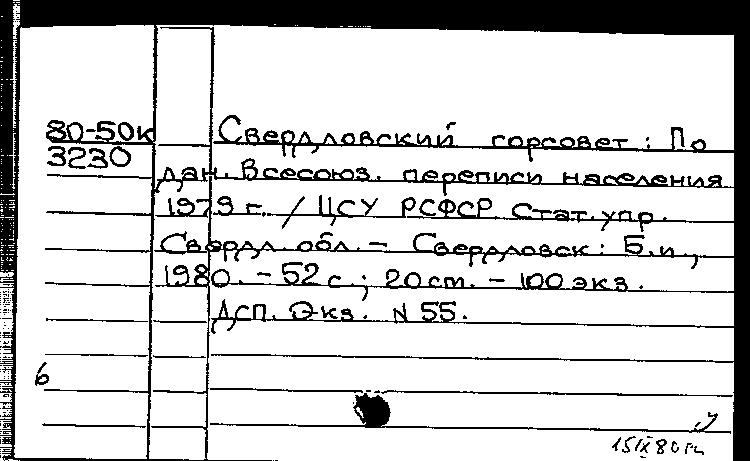 80-50к Свердловский горсовет: По
3230
дан. Всесоюз. переписи населения
1979 г. / ЦСУ РСФСР. Стат. упр.
Свердл. обл. – Свердловск: Б.и.,
1980. – 52 с.; 20 см. – 100 экз.
ДСП. Экз. N 55.
6
15 IX 80